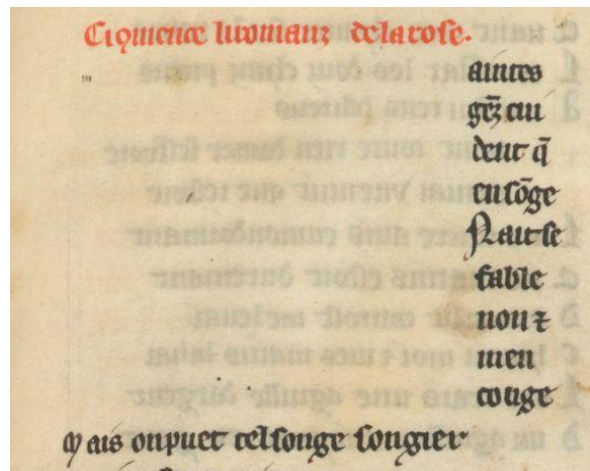 Ci ꝯmence li romanz de la rose.
aintes
gẽz cui
dent q̃
en sõge
N ait se
fable
non ⁊
men
conge
M ais on puet tel songe songier